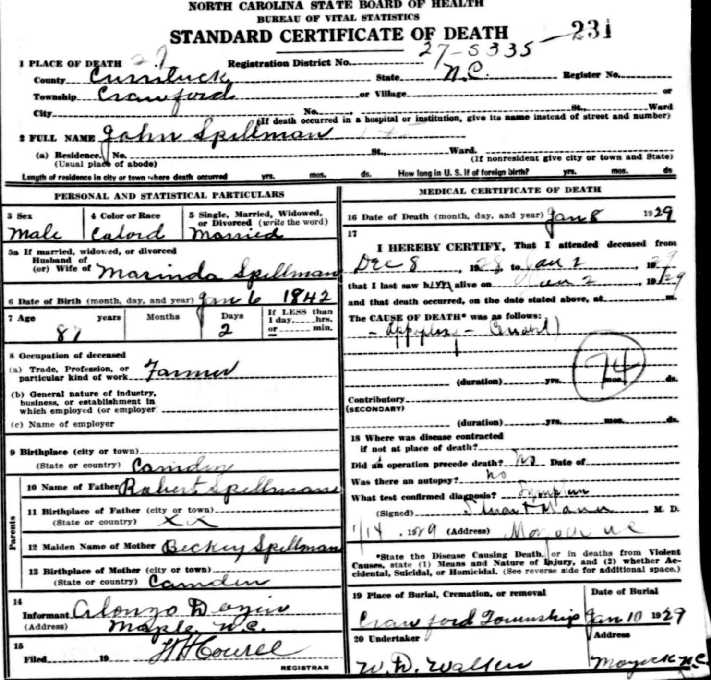 NORTH CAROLINA STATE BOARD OF HEALTH
BUREAU OF VITAL STATISTICS
STANDARD CERTIFICATE OF DEATH 231
27-5335
1 PLACE OF DEATH 27 Registration District No.
County Currituck State N.C. Register No.
Township Crawford or Village or
City No. St., Ward
(If death occurred in a hospital or institution, give its name instead of street and number)
2 FULL NAME John Spillman
(a) Residence, No. St., Ward.
(Usual place of abode) (If nonresident give city or town and State)
Length of residence in city or town where death occurred yrs. mos. ds. How long in U. S. if of foreign birth? yrs. mos. ds.
PERSONAL AND STATISTICAL PARTICULARS
3 Sex 4 Color or Race 5 Single, Married, Widowed,
or Divorced (write the word)
Male Colord Married
5a If married, widowed, or divorced
Husband of
(or) Wife of Marinda Spillman
6 Date of Birth (month, day, and year) Jan 6 1842
7 Age years Months Days If LESS than
1 day, hrs.
or min.
87 2
8 Occupation of deceased
(a) Trade, Profession, or
particular kind of work Farmer
(b) General nature of industry,
business, or establishment in
which employed (or employer
(c) Name of employer
9 Birthplace (city or town)
(State or country) Camden
Parents
10 Name of Father Robert Spellman
11 Birthplace of Father (city or town)
(State or country)
12 Maiden Name of Mother Beckey Spellman
13 Birthplace of Mother (city or town)
(State or country) Camden
14
Informant Alonzo
(Address) Maple N.C.
15
Filed 19
REGISTRAR
MEDICAL CERTIFICATE OF DEATH
16 Date of Death (month, day, and year) Jan 8 1929
17
I HEREBY CERTIFY, That I attended deceased from
Dec 8 1928, to Jan 2 1929
that I last saw him alive on Jan 2 1929
and that death occurred, on the date stated above, at m.
The CAUSE OF DEATH* was as follows:
74
(duration) yrs. mos. ds.
Contributory
(SECONDARY)
(duration) yrs. mos. ds.
18 Where was disease contracted
if not at place of death?
Did an operation precede death? No Date of
Was there an autopsy? No
What test confirmed diagnosis?
(Signed) M. D.
1929 (Address) Moyock NC
*State the Disease Causing Death, or in deaths from Violent
Causes, state (1) Means and Nature of Injury, and (2) whether Ac-
cidental, Suicidal, or Homicidal. (See reverse side for additional space.)
19 Place of Burial, Cremation, or removal Date of Burial
Crawford Township Jan 10 1929
20 Undertaker Address
W. D. Walker Moyock N.C.